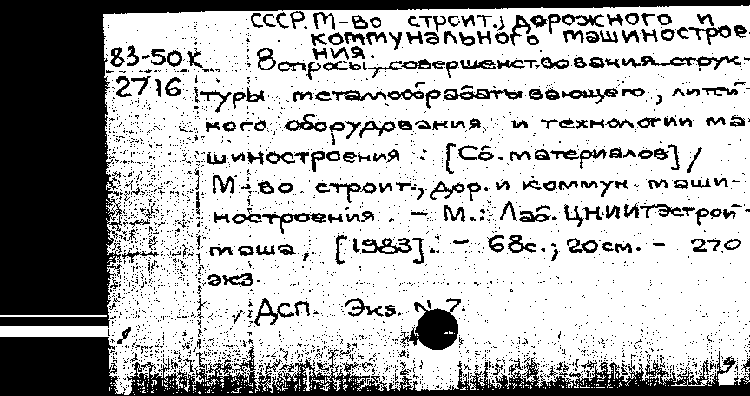 СССР. М-во строит., дорожного и
коммунального машинострое-
ния.
83-50к
Вопросы совершенствования струк-
2716
туры металлообрабатывающего, литей-
ного оборудования и технологии ма-
шиностроения : [Сб. материалов] /
М-во строит., дор. и коммун. маши-
ностроения. - М.: Лаб. ЦНИИТЭстрой-
маша, [1983]. - 68с.; 20см. - 270
экз.
ДСП. Экз. N 7.